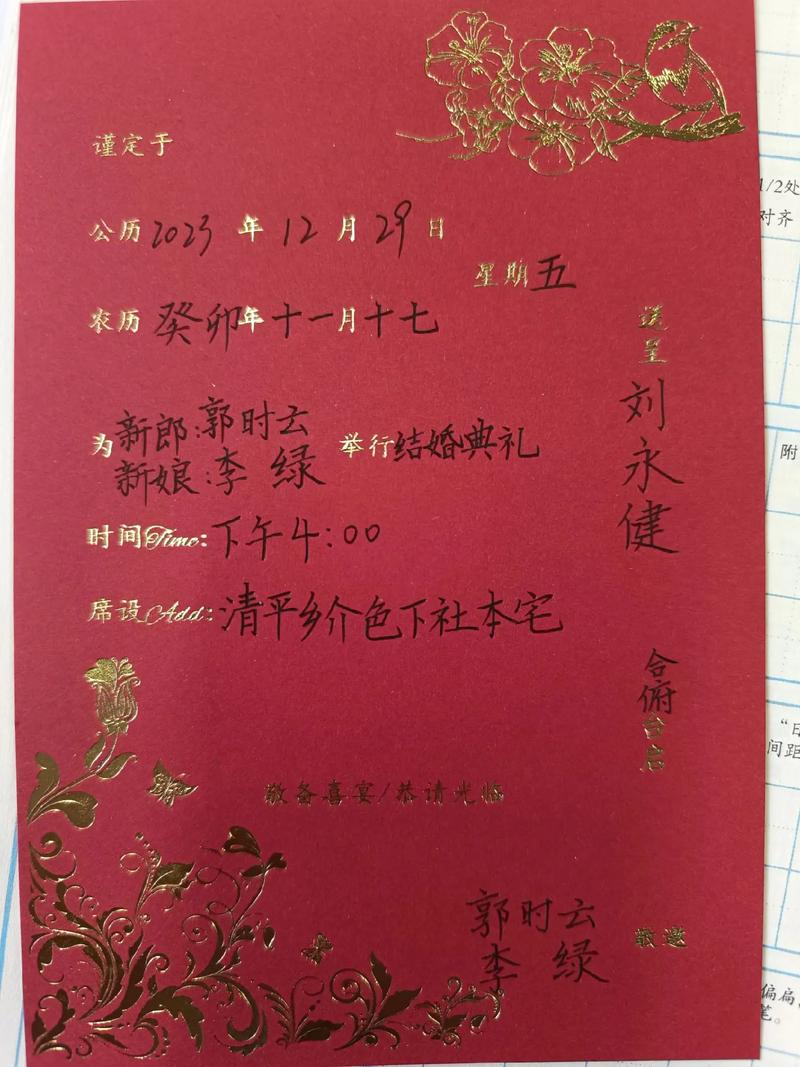 谨定于
公历 2023 年 12 月 29 日
星期五
农历 癸卯年十一月十七
为 新郎:郭时云 举行结婚典礼
新娘:李绿
时间Time: 下午4:00
席设Add: 清平乡介色下社本宅
敬备喜宴/恭请光临
送呈
刘永健
合俯
台启
郭时云
李绿
敬邀
1/2处
对齐
附
“日
间距
偏扁
笔。